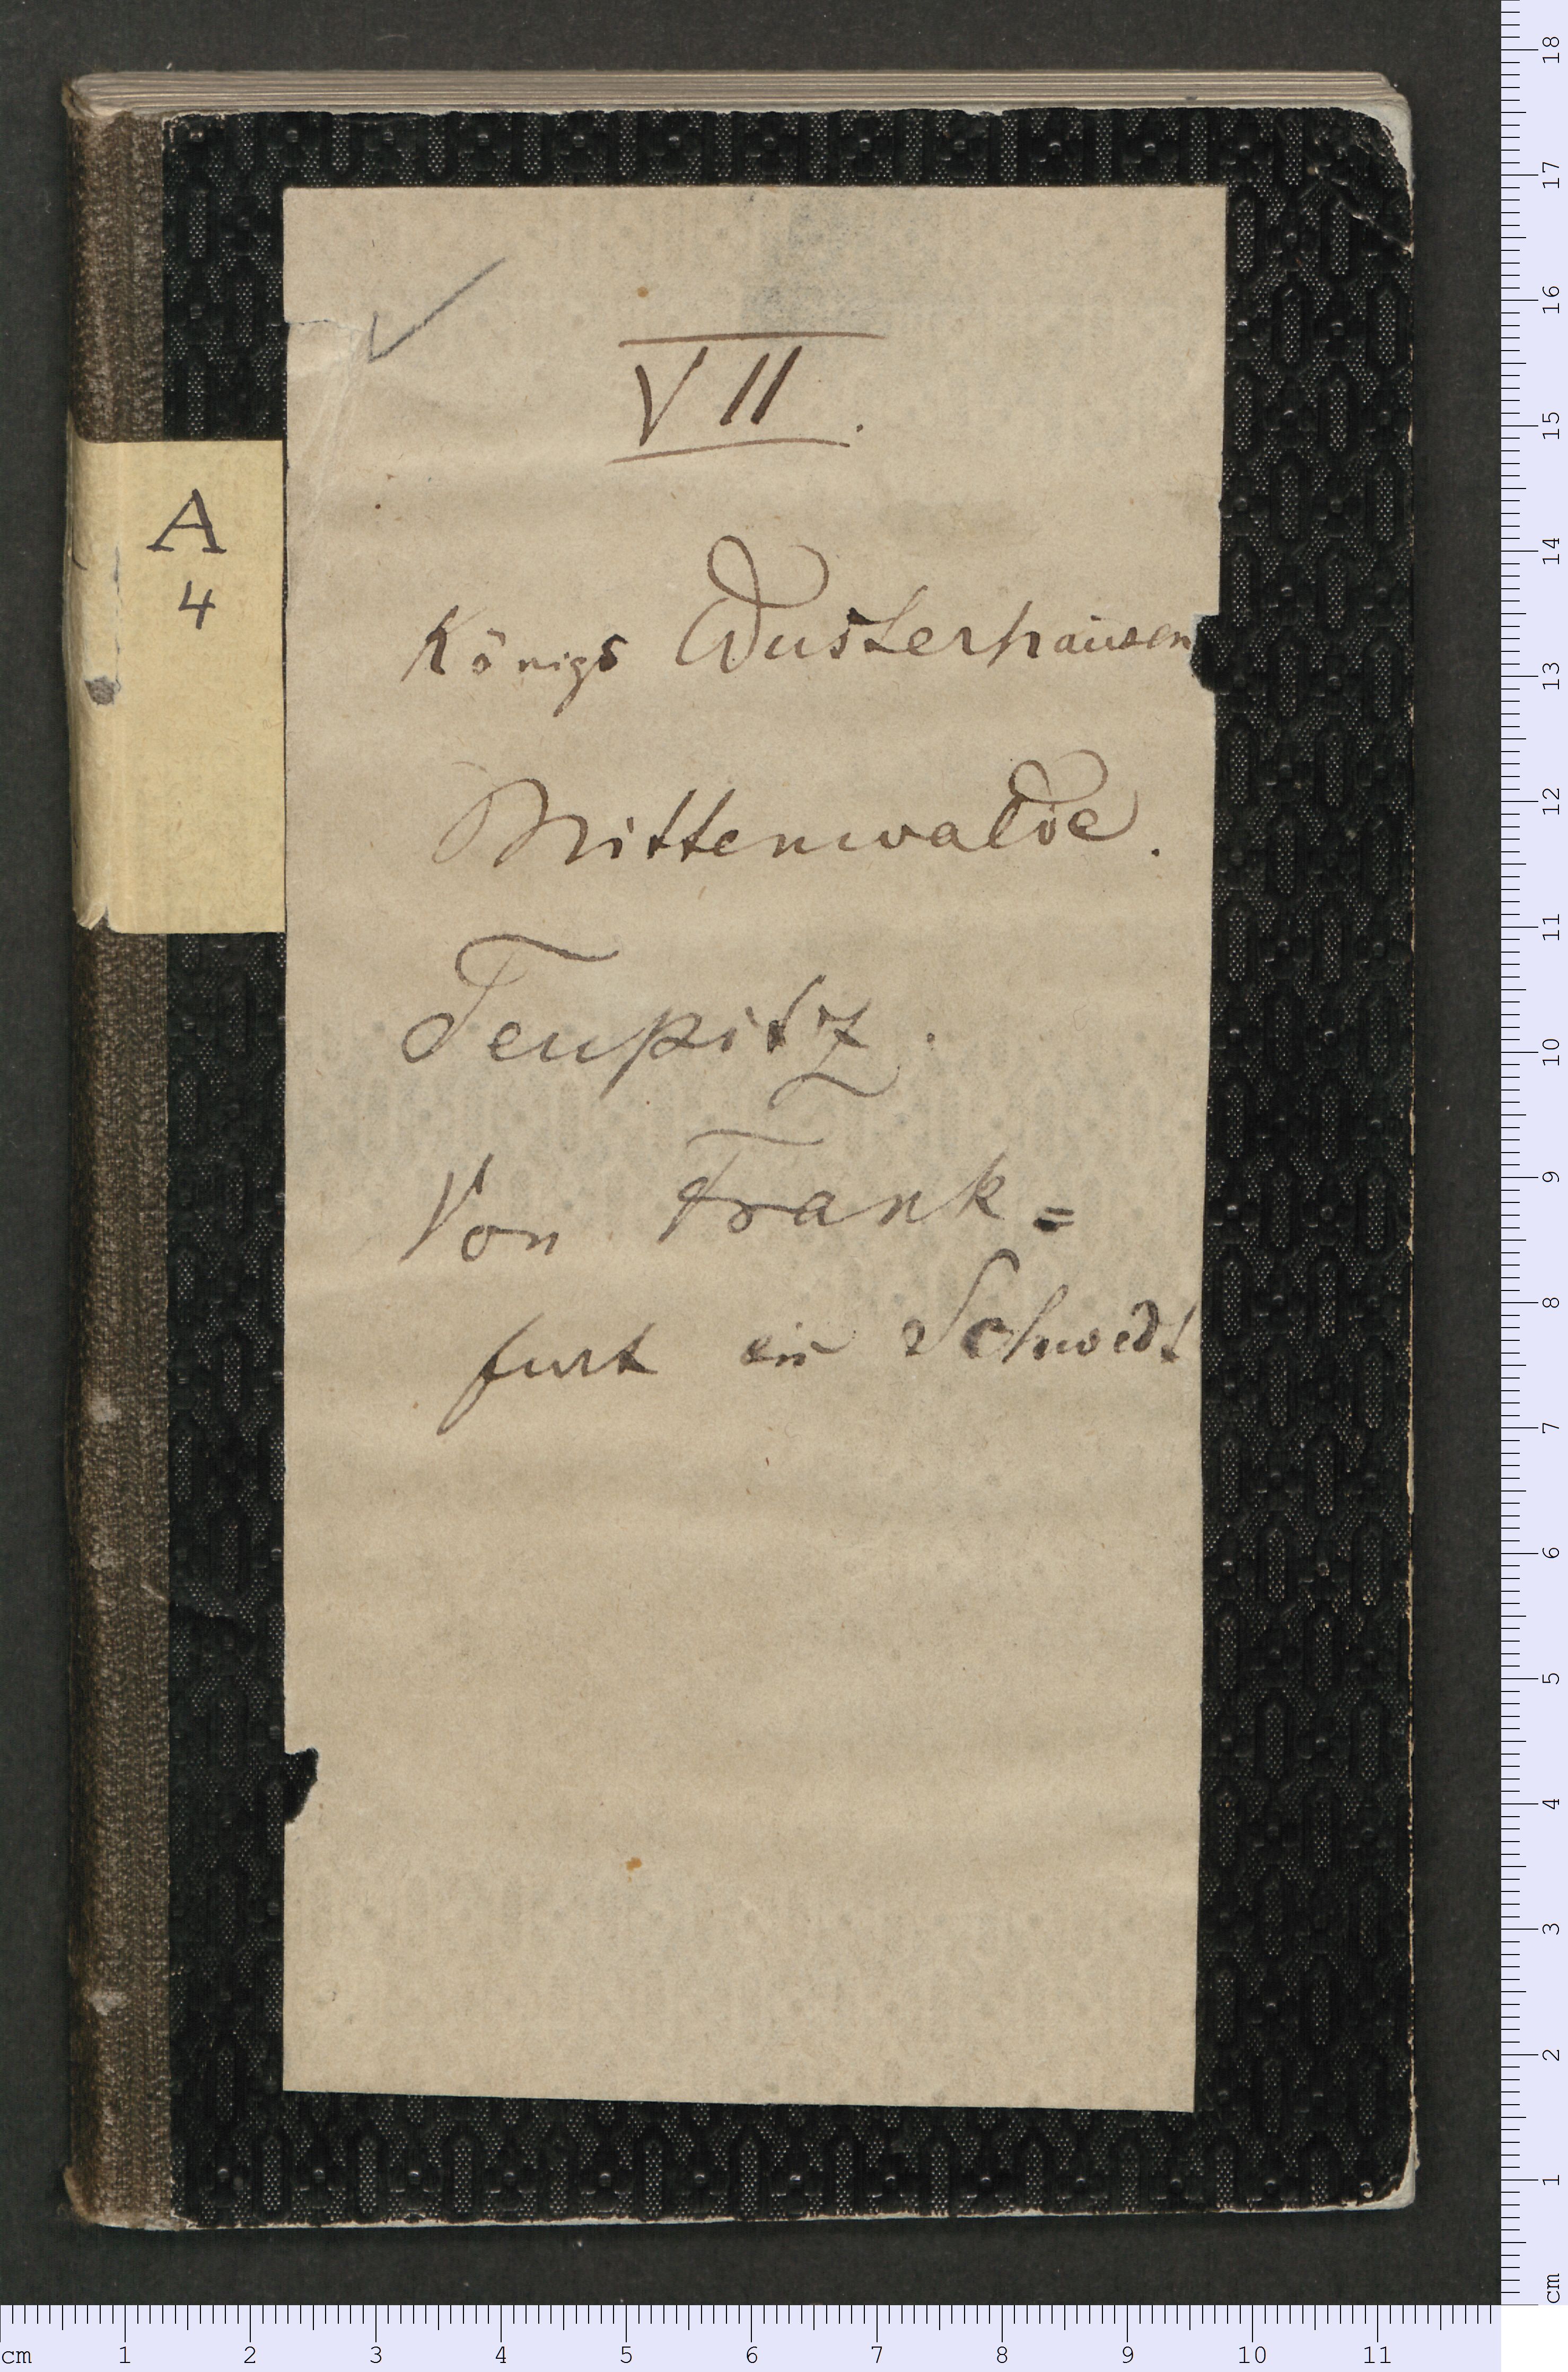 VII.
A
4
Königs Wusterhausen
Mittenwalde.
Teupitz.
Von Frank=
furt bis Schwedt
18
17
16
15
14
13
12
11
10
9
8
7
6
5
4
3
2
1
cm
cm 1 2 3 4 5 6 7 8 9 10 11